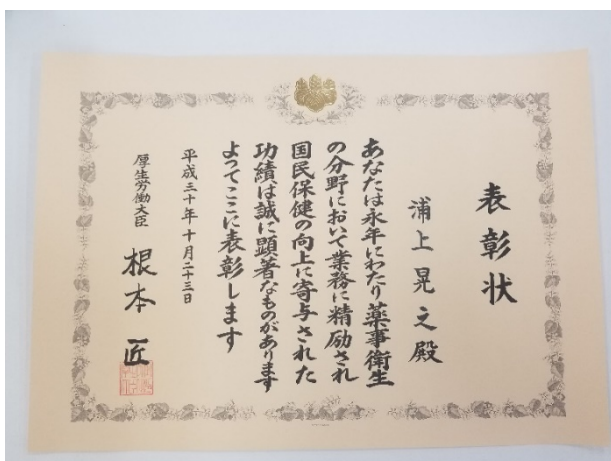 表彰状
浦上晃之殿
あなたは永年にわたり薬事衛生
の分野において業務に精励され
国民保健の向上に寄与された
功績は誠に顕著なものがあります
よってここに表彰します
平成三十年十月二十三日
厚生労働大臣 根本匠